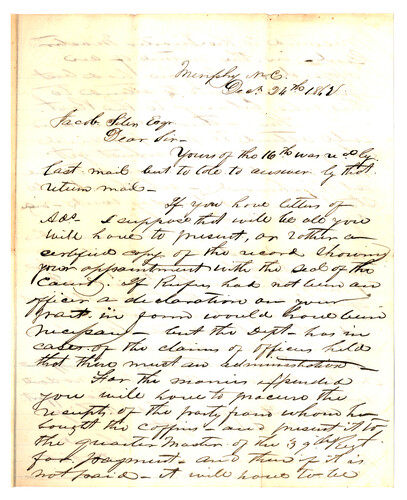 Murphy N.C.
Dec. 24th 1862
Jacob Siler Esqr
Dear Sir -
Yours of the 16th was recd by
last mail but to late to answer by that
return mail -
If you have letters of
Ads I suppose that will be all you
will have to present, or rother a
certified copy of the record showing
your appointment with the seal of the
Court. If Rufus had not been an
officer a declaration on your
part in form would have been
necessary - but the Dept. has in
cases of the claims of officers held
that there must an administration -
For the monies expended
you will have to procure the
receipts of the party from whom he
bought the coffin - and present it to
the quarter Master of the 39th Regt
for payment - and then if it is
not paid - it will have to be